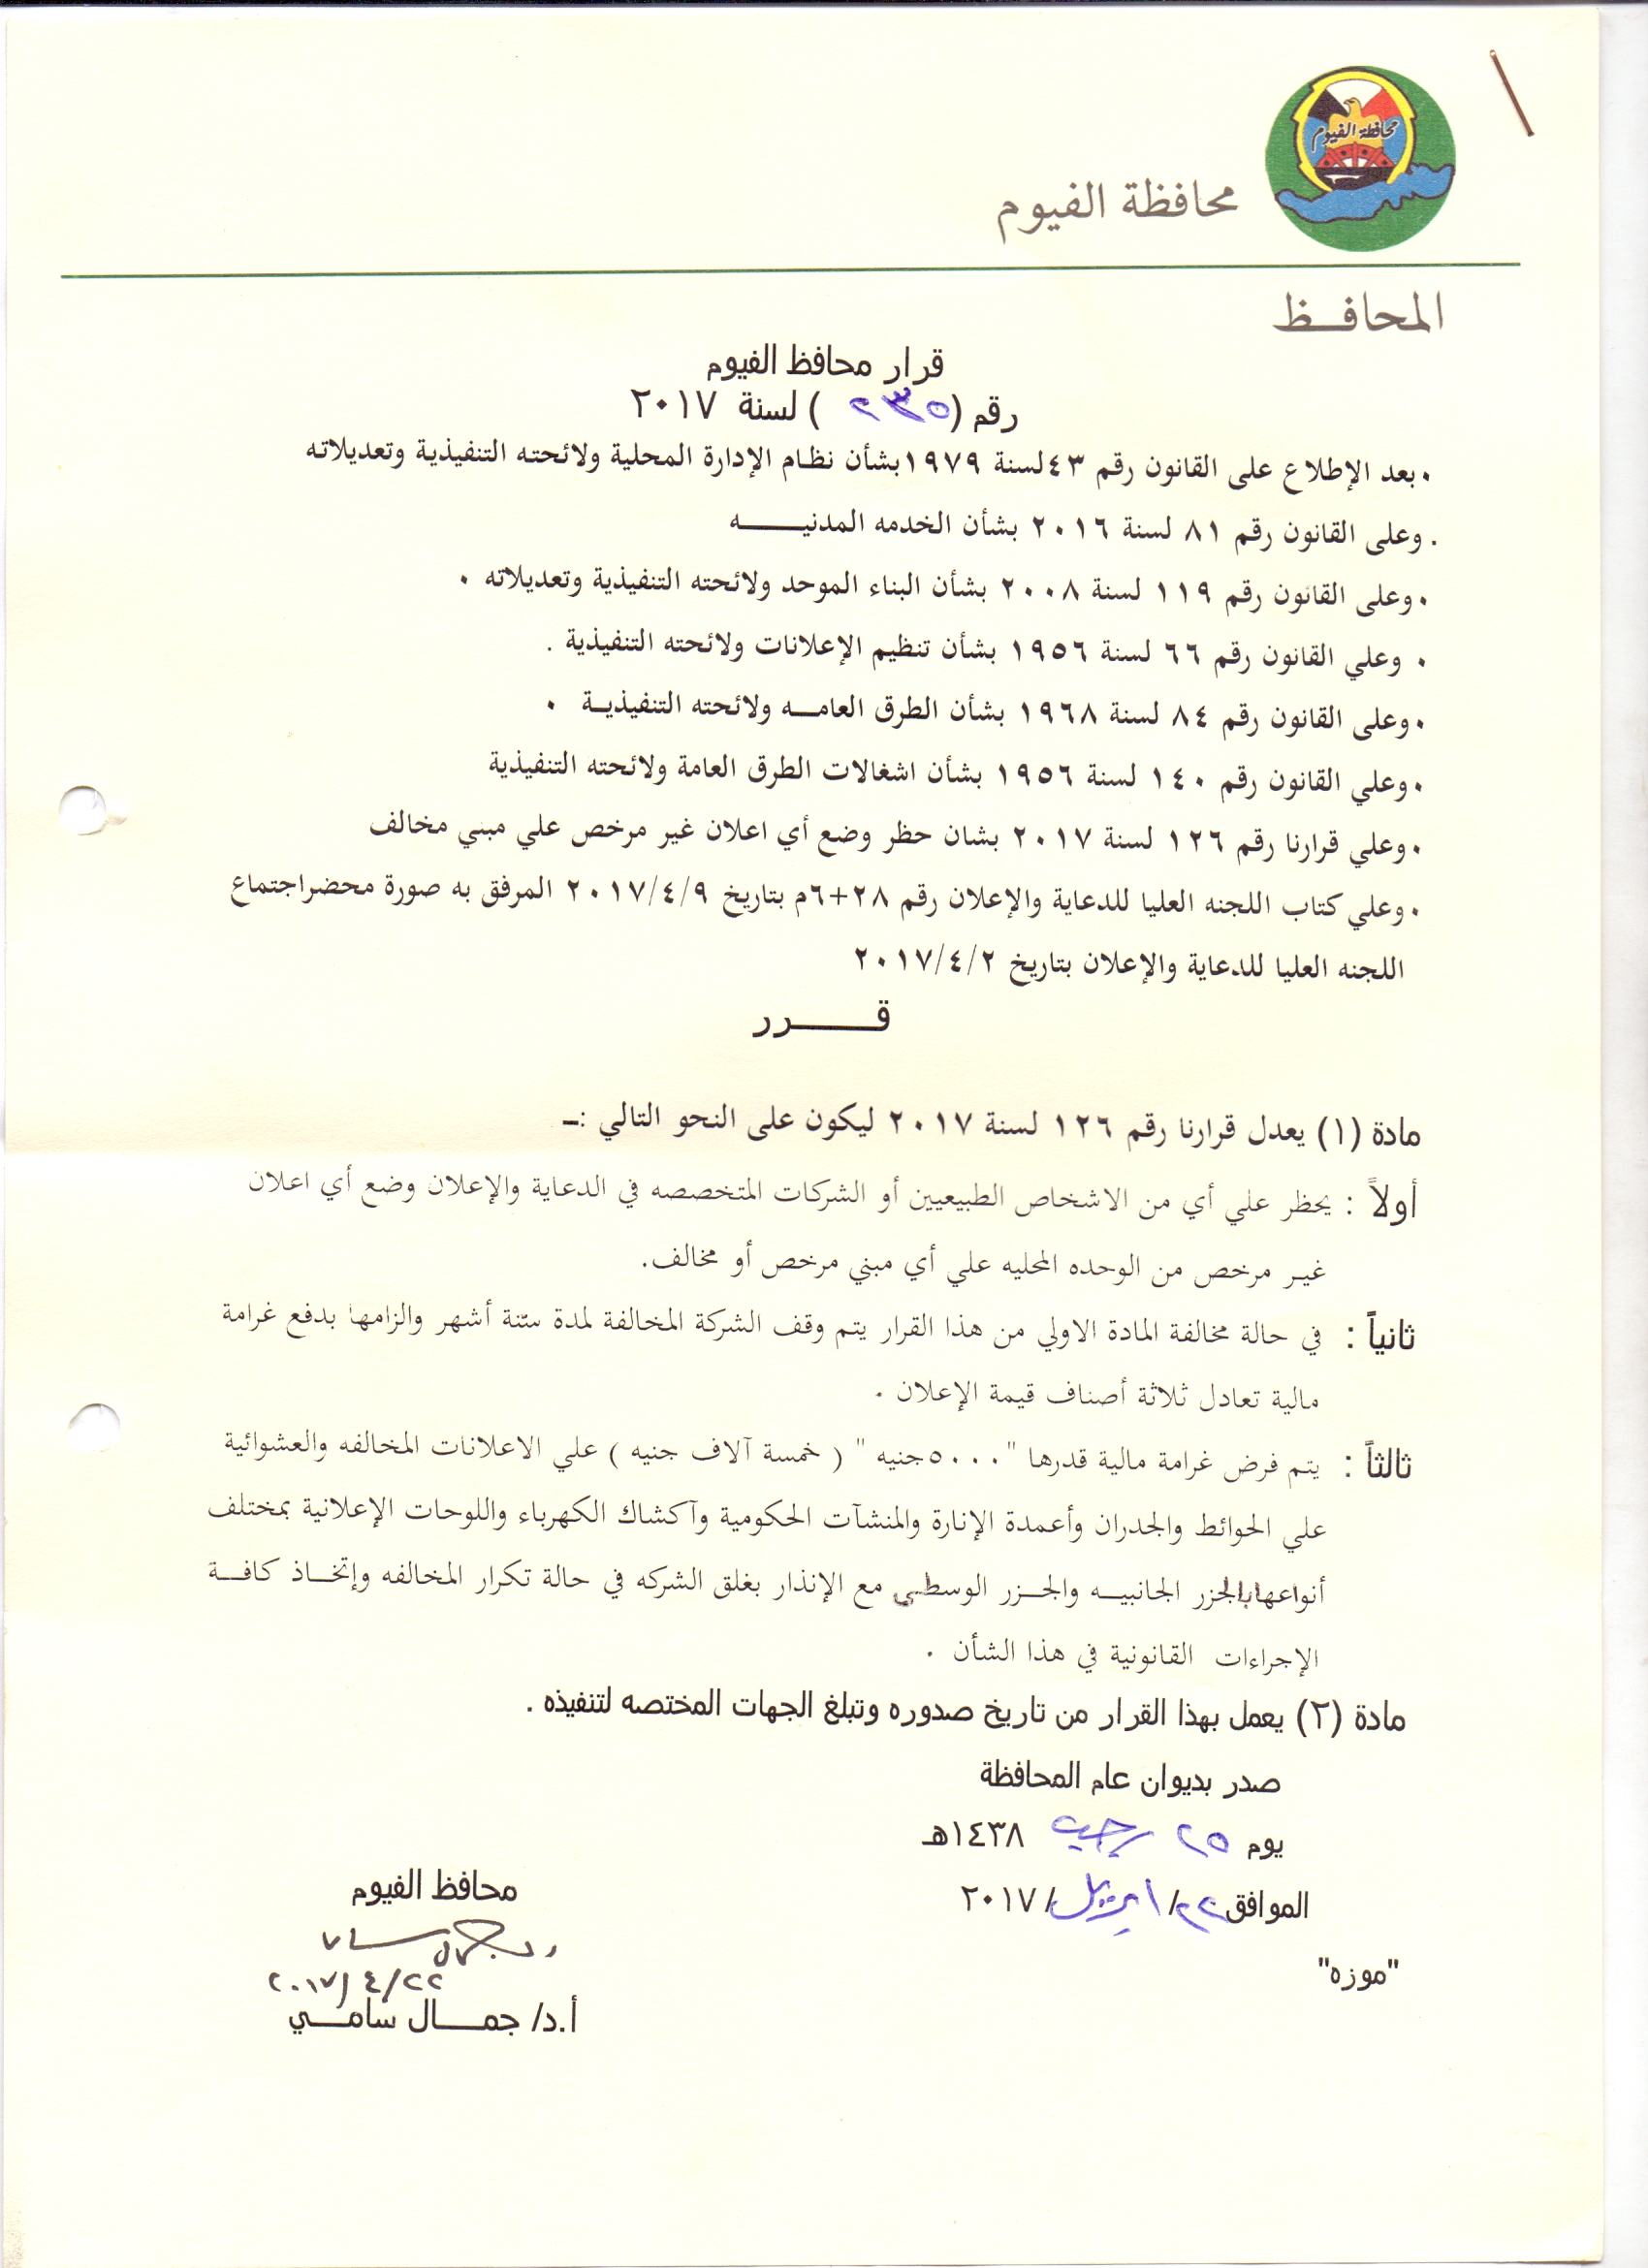 محافظة الفيوم
محافظة الفيوم
المحافـــظ
قرار محافظ الفيوم
رقم (٢٣٥) لسنة ٢٠١٧
٠ بعد الإطلاع على القانون رقم ٤٣ لسنة ١٩٧٩ بشأن نظام الإدارة المحلية ولائحته التنفيذية وتعديلاته
. وعلى القانون رقم ٨١ لسنة ٢٠١٦ بشأن الخدمه المدنيـــــــه
٠ وعلى القانون رقم ١١٩ لسنة ٢٠٠٨ بشأن البناء الموحد ولائحته التنفيذية وتعديلاته ٠
٠ وعلي القانون رقم ٦٦ لسنة ١٩٥٦ بشأن تنظيم الإعلانات ولائحته التنفيذية .
٠ وعلى القانون رقم ٨٤ لسنة ١٩٦٨ بشأن الطرق العامـــه ولائحته التنفيذيــة ٠
٠ وعلي القانون رقم ١٤٠ لسنة ١٩٥٦ بشأن اشغالات الطرق العامة ولائحته التنفيذية
٠ وعلي قرارنا رقم ١٢٦ لسنة ٢٠١٧ بشان حظر وضع أي اعلان غير مرخص علي مبني مخالف
٠ وعلي كتاب اللجنه العليا للدعاية والإعلان رقم ٢٨+٦م بتاريخ ٢٠١٧/٤/٩ المرفق به صورة محضراجتماع
اللجنه العليا للدعاية والإعلان بتاريخ ٢٠١٧/٤/٢
قـــــــرر
مادة (١) يعدل قرارنا رقم ١٢٦ لسنة ٢٠١٧ ليكون على النحو التالي :ـ
أولاً : يحظر علي أي من الاشخاص الطبيعيين أو الشركات المتخصصه في الدعاية والإعلان وضع أي اعلان
غير مرخص من الوحده المحليه علي أي مبني مرخص أو مخالف.
ثانياً : في حالة مخالفة المادة الاولي من هذا القرار يتم وقف الشركة المخالفة لمدة ستة أشهر والزامها بدفع غرامة
مالية تعادل ثلاثة أصناف قيمة الإعلان .
ثالثاً : يتم فرض غرامة مالية قدرها "٥٠٠٠جنيه " ( خمسة آلاف جنيه ) علي الاعلانات المخالفه والعشوائية
علي الحوائط والجدران وأعمدة الإنارة والمنشآت الحكومية وآكشاك الكهرباء واللوحات الإعلانية بمختلف
أنواعهابالجزر الجانبيـــه والجـــزر الوسطـى مع الإنذار بغلق الشركه في حالة تكرار المخالفه وإتخـــاذ كافـــة
الإجراءات القانونية في هذا الشأن .
مادة (٢) يعمل بهذا القرار من تاريخ صدوره وتبلغ الجهات المختصه لتنفيذه .
صدر بديوان عام المحافظة
يوم ٢٥ رجب ١٤٣٨هـ
الموافق ٢٢/ ابريل /٢٠١٧
محافظ الفيوم
٢٠١٧/٤/٢٢
أ.د/ جمــــال سامــــي
"موزه"